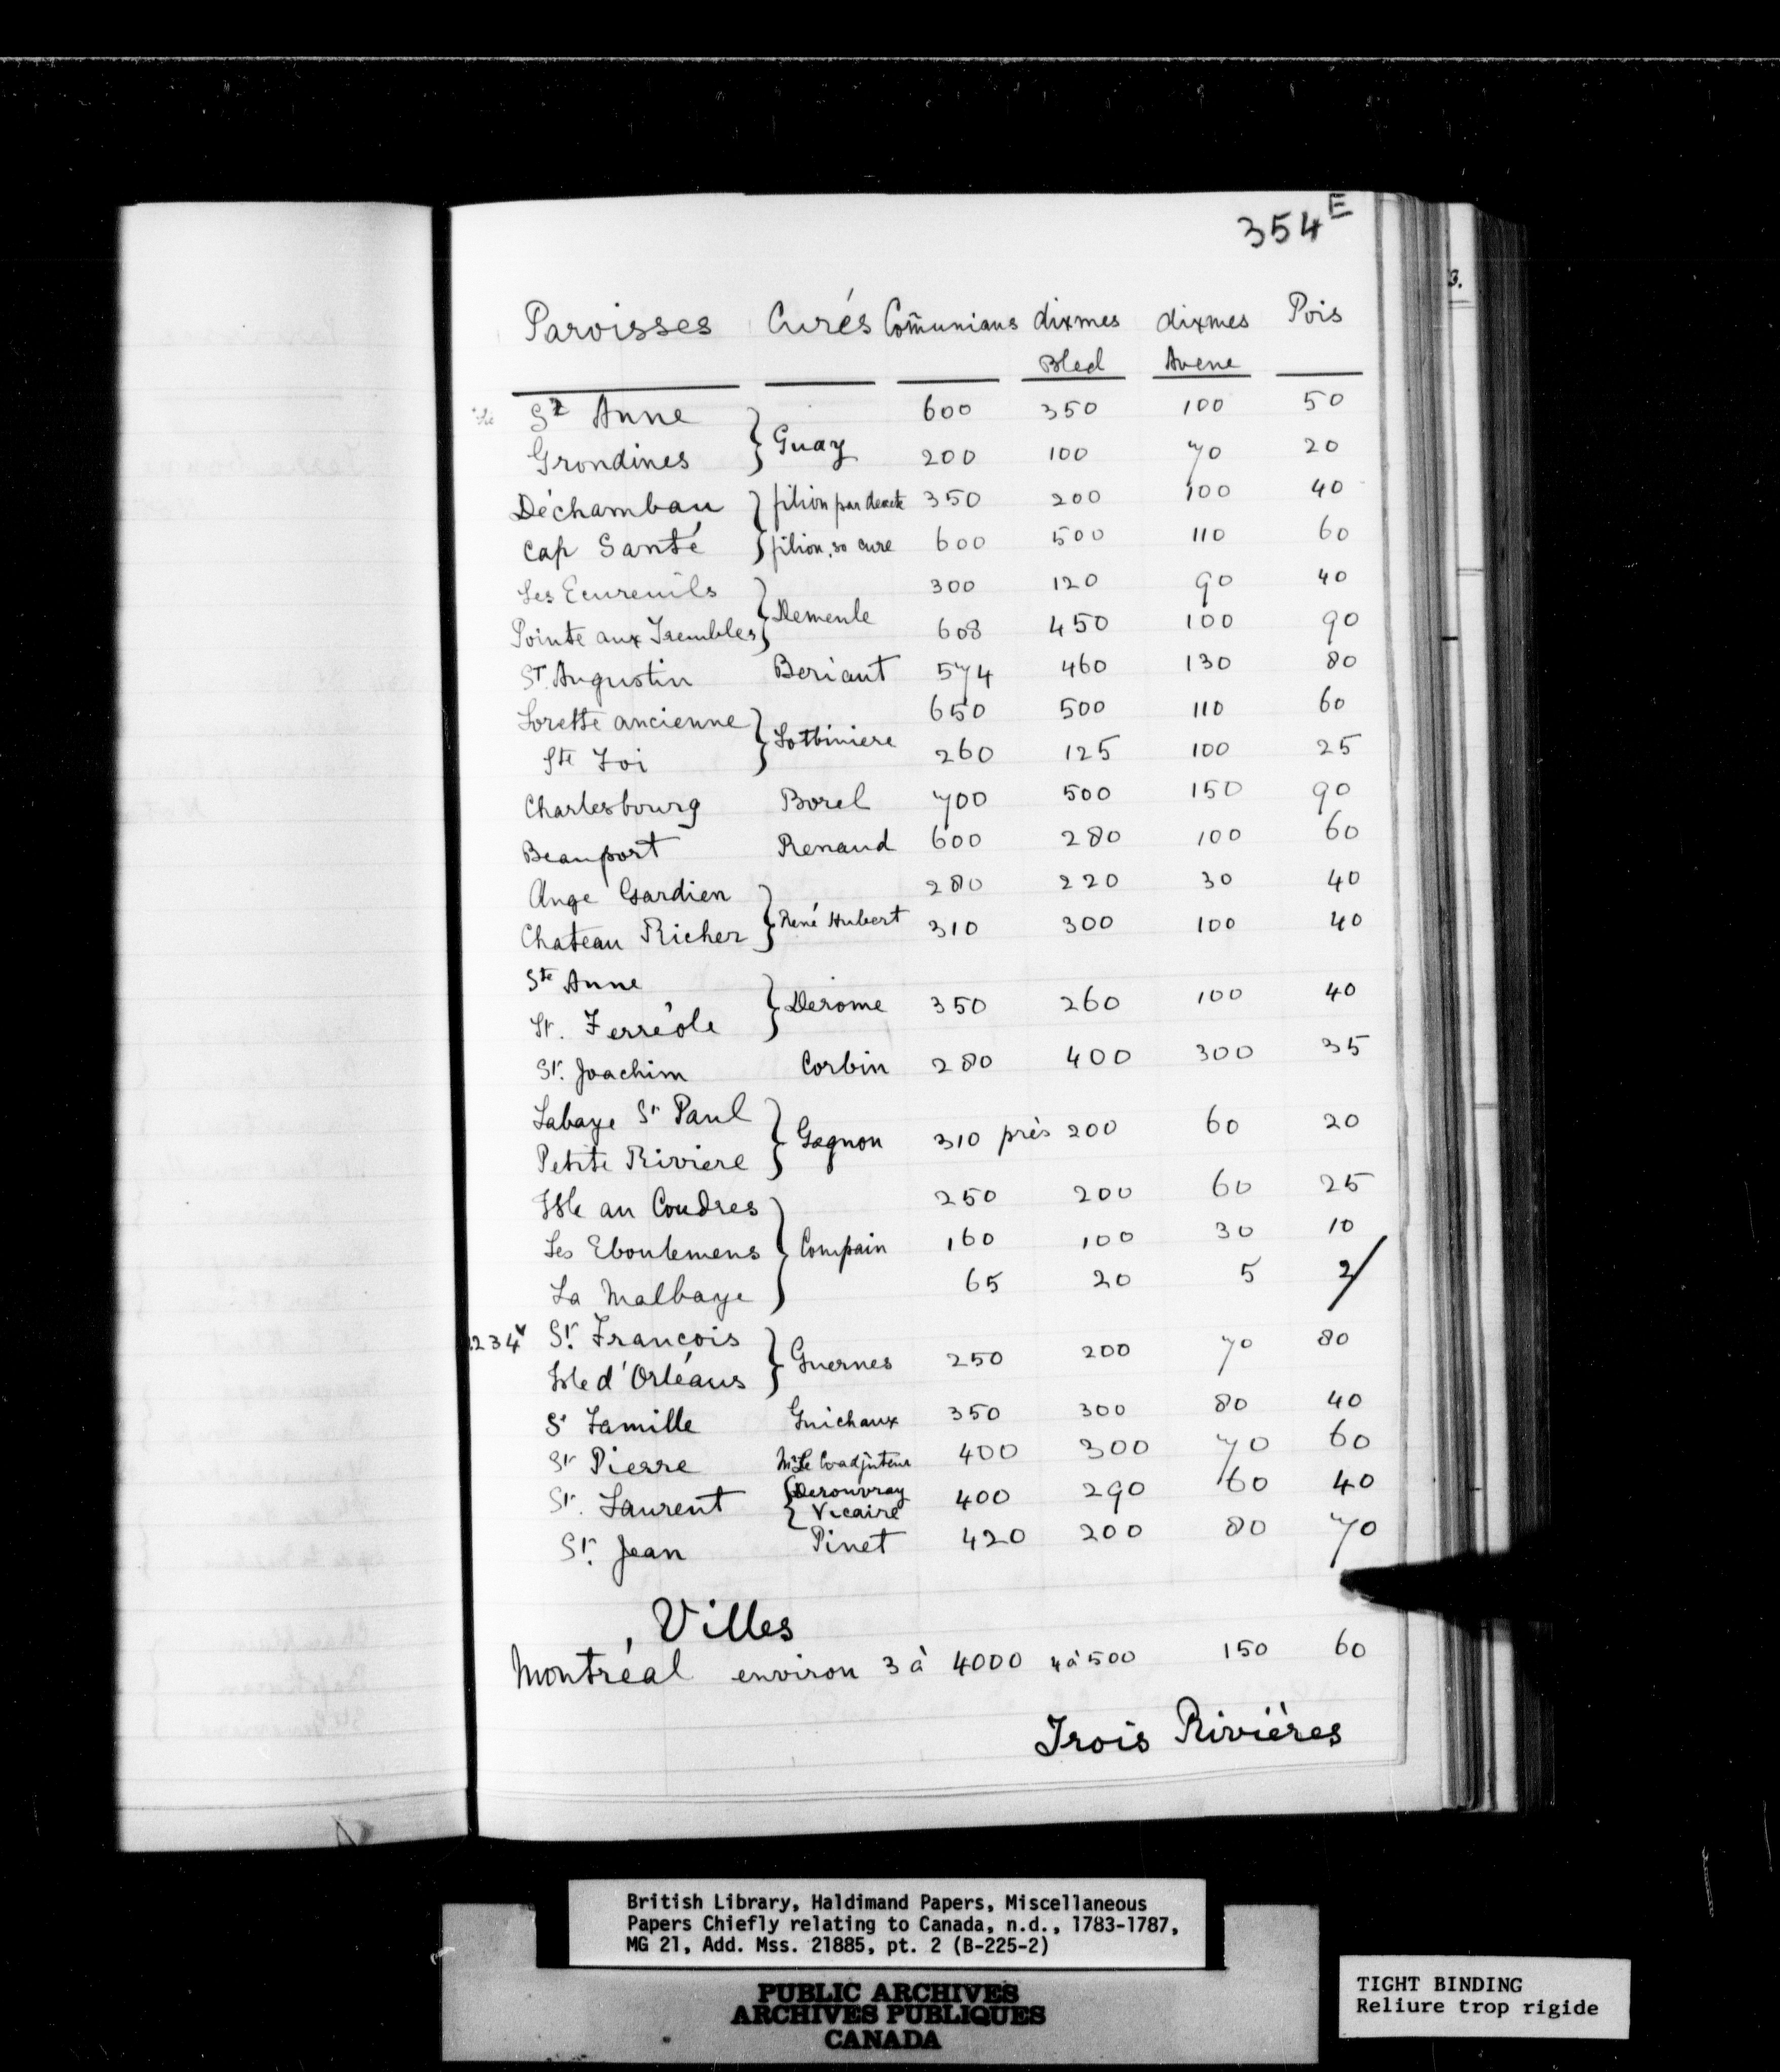 354E
Paroisses Curés Com̃unians dixmes dixmes Pois
Bled Avene
St Anne } Guay 600 350 100 50
Grondines 200 100 70 20
Déchambau } filion par 350 200 100 40
Cap Santé } filion, so cure 600 500 110 60
Les Ecureuils } Demeule 300 120 90 40
Pointe aux Trembles 608 450 100 90
St. Augustin Beriaut 574 460 130 80
Lorette ancienne } Lotbiniere 650 500 110 60
Ste Foi 260 125 100 25
Charlesbourg Borel 700 500 150 90
Beauport Renaud 600 280 100 60
Ange Gardien } René Hubert 280 220 30 40
Chateau Richer 310 300 100 40
Ste Anne } Derome 350 260 100 40
St. Ferréole
St. Joachim Corbin 280 400 300 35
Labaye St Paul } Gagnon 310 près 200 60 20
Petite Riviere
Isle au Coudres } Compain 250 200 60 25
Les Eboulemens 160 100 30 10
La Malbaye 65 20 5 2/
234v St. Francois } Guernes 250 200 70 80
Isle d'Orléans
St Famille Guichaux 350 300 80 40
St Pierre Mr Le Coadjuteur 400 300 70 60
St. Laurent { Derouvray Vicaire 400 290 60 40
St. Jean Pinet 420 200 80 70
Villes
Montréal environ 3 à 4000 4 à 500 150 60
Trois Riviéres
British Library, Haldimand Papers, Miscellaneous
Papers Chiefly relating to Canada, n.d., 1783-1787,
MG 21, Add. Mss. 21885, pt. 2 (B-225-2)
PUBLIC ARCHIVES
ARCHIVES PUBLIQUES
CANADA
TIGHT BINDING
Reliure trop rigide